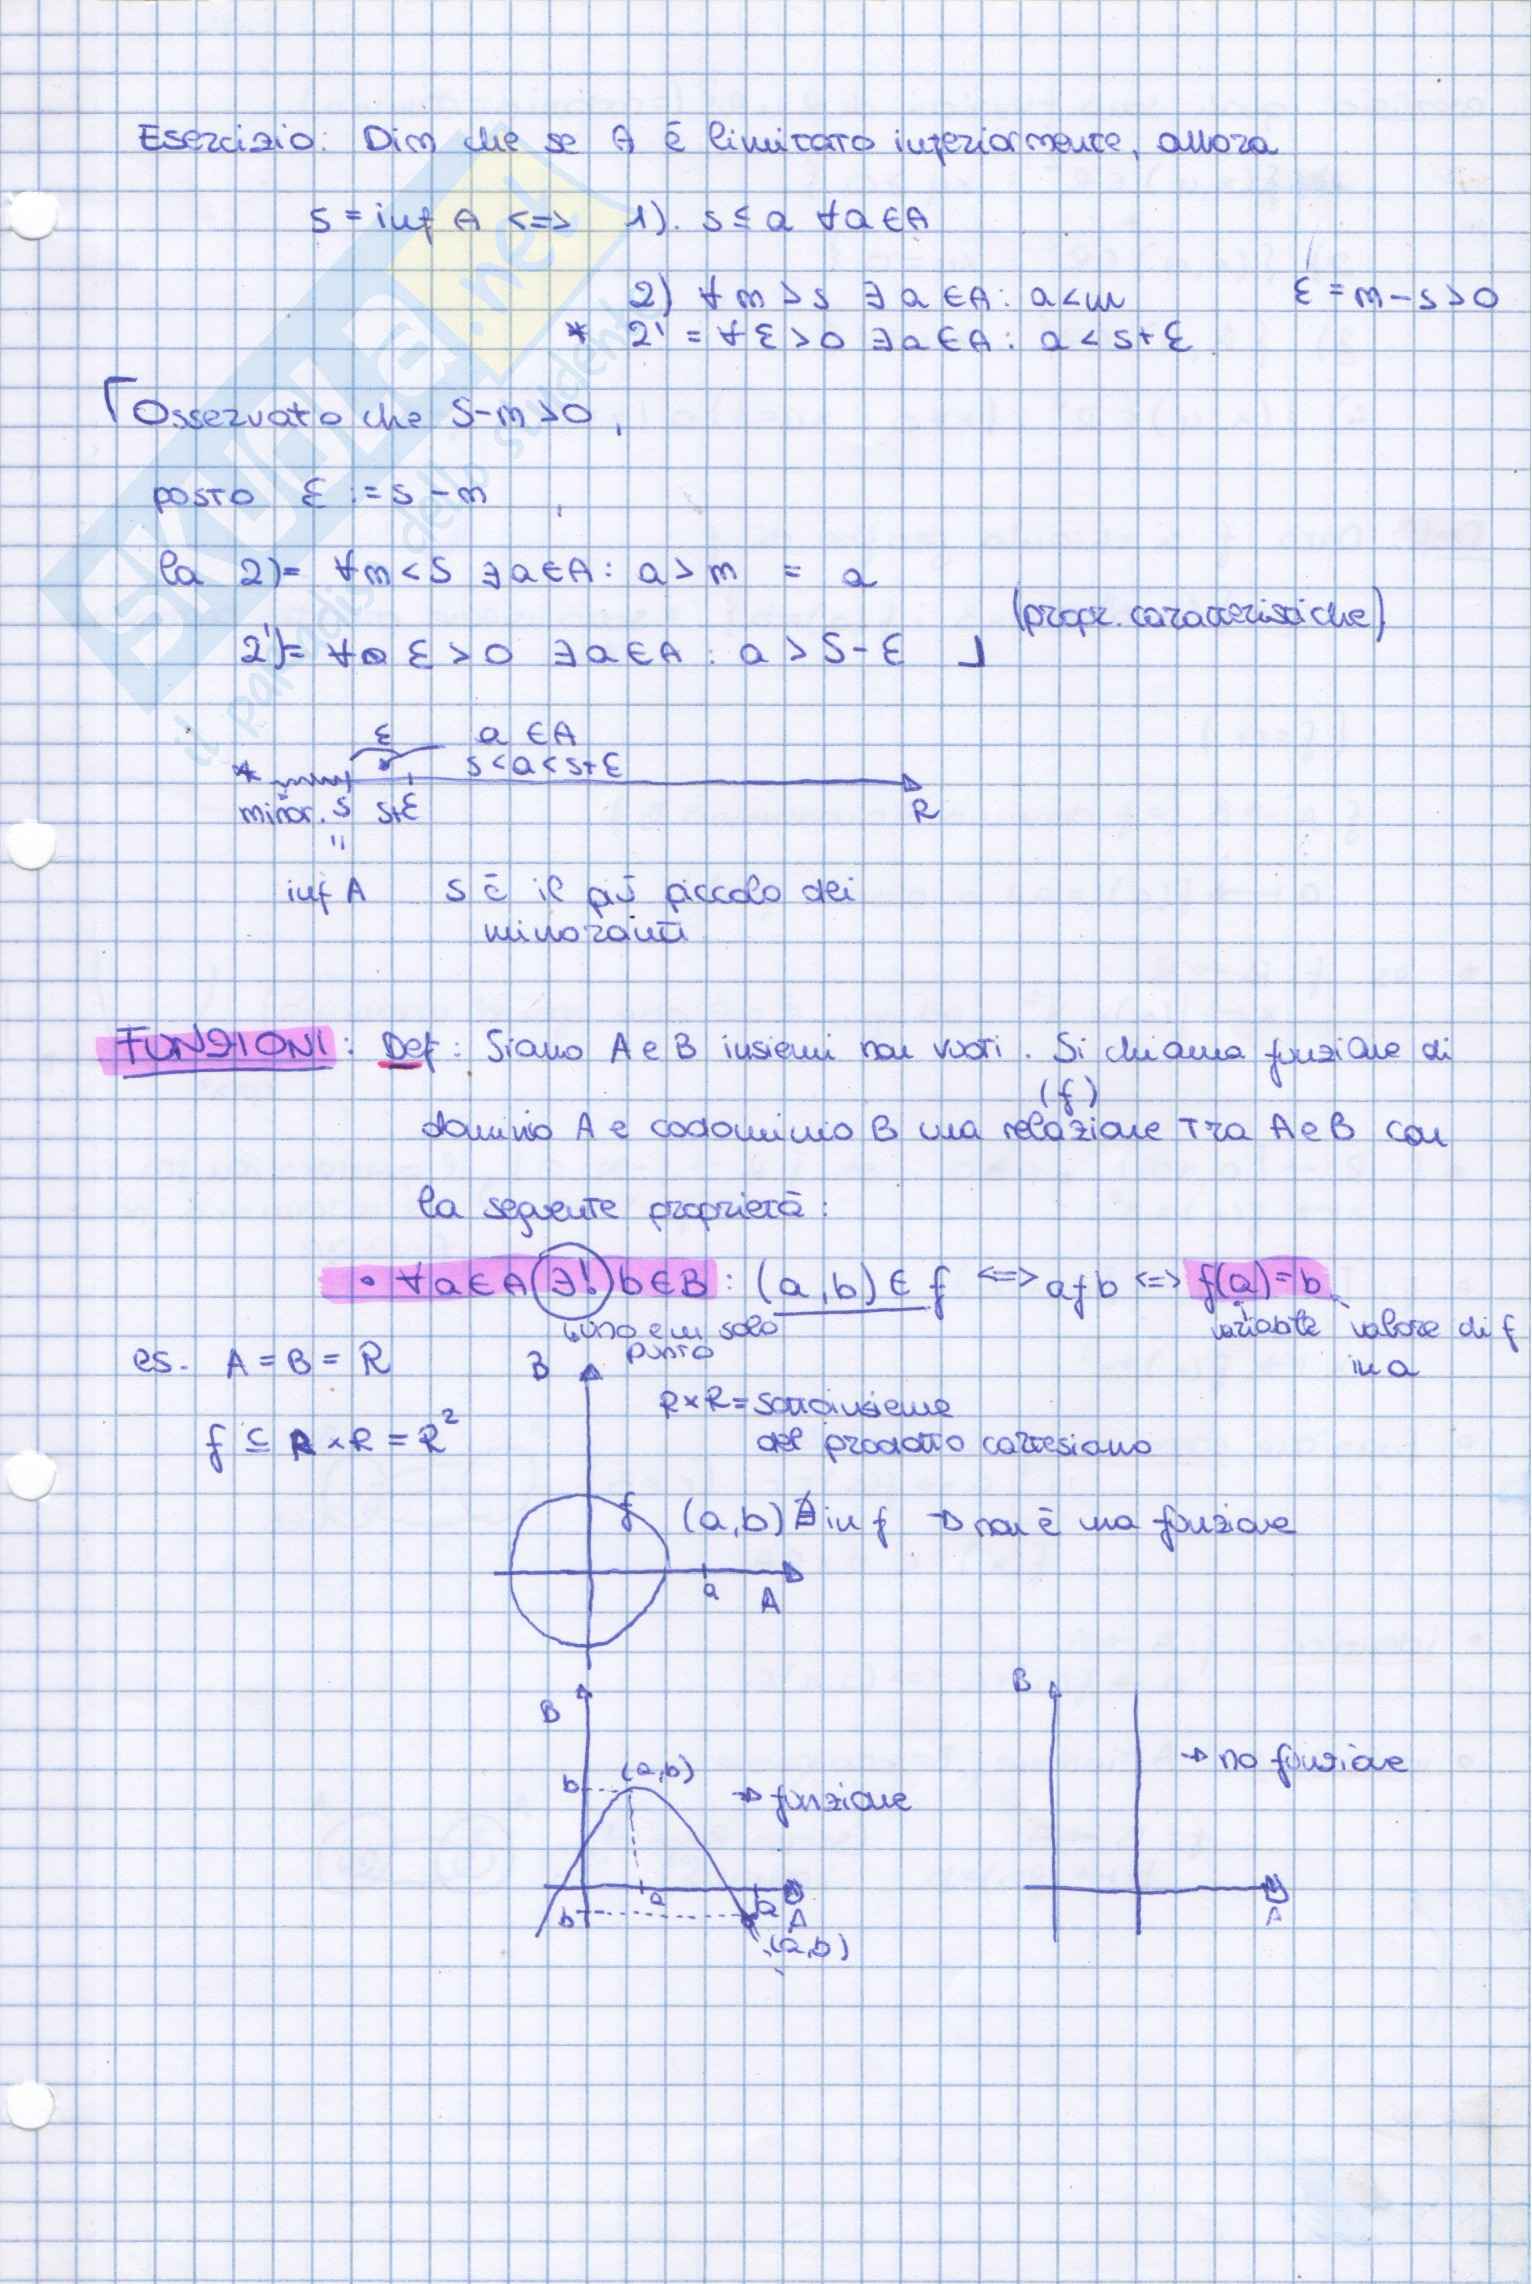 Esercizio: Dim che se A è limitato inferiormente, allora
s = inf A <=> 1). s ≤ a ∀a ∈ A
2) ∀ m > s ∃ a ∈ A : a < m ε = m - s > 0
* 2' = ∀ ε > 0 ∃ a ∈ A : a < s + ε
Osservato che S - m > 0,
posto ε := s - m ,
la 2) = ∀ m < S ∃ a ∈ A : a > m = a
(propr. caratteristiche)
2') = ∀ ε > 0 ∃ a ∈ A : a > S - ε
ε a ∈ A
* s < a < s + ε
minor. s s+ε R
"
inf A s è il più piccolo dei
minoranti
FUNZIONI : Def : Siano A e B insiemi non vuoti. Si chiama funzione di
(f)
dominio A e codominio B una relazione tra A e B con
la seguente proprietà :
• ∀ a ∈ A ∃! b ∈ B : (a, b) ∈ f <=> a f b <=> f(a) = b
uno e un solo variabile valore di f
punto in a
es. A = B = R B
R x R = sottoinsieme
f ⊆ R x R = R²
del prodotto cartesiano
f (a, b) ∄ in f → non è una funzione
a A
B B
→ no funzione
b (a,b) → funzione
a a A A
b (a,b)
SKUOLA.net
il paradiso dello studente